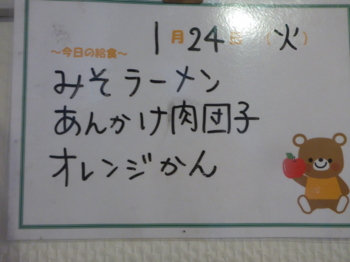 1月24日(火)
～今日の給食～
みそラーメン
あんかけ肉団子
オレンジかん